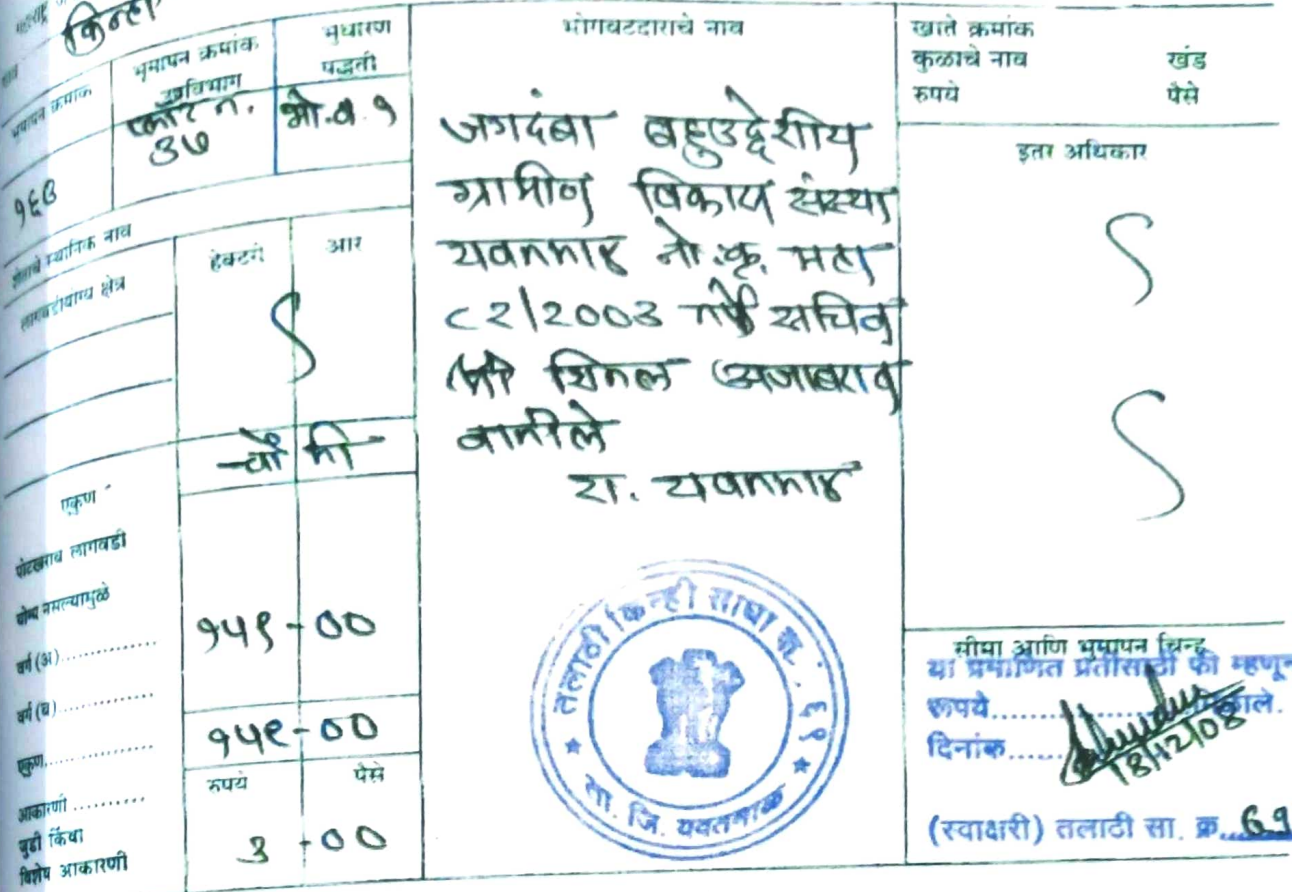 किन्ही
भूमापन क्रमांक
भूमापन क्रमांक
उपविभाग
भुधारणा
पद्धती
१६३
प्लॉट नं.
३७
भो.व. १
शेताचे स्थानिक नाव
लागवडीयोग्य क्षेत्र
हेक्टर
आर
चौ मी
एकुण
पोटखराब लागवडी
योग्य नसल्यामुळे
वर्ग (अ)..............
१५९-००
वर्ग (ब)..............
एकुण..............
१५९-००
रुपये
पैसे
आकारणी ..........
जुडी किंवा
विशेष आकारणी
३-००
भोगवटदाराचे नाव
जगदंबा बहुउद्देशीय
ग्रामीण विकास संस्था
यवतमाळ नों.कृ. महा
८२/2003 तर्फे सचिव
श्री अजाबराव
रा. यवतमाळ
तलाठी किन्ही साझा क्र. ६९
ता. जि. यवतमाळ
खाते क्रमांक
कुळाचे नाव
खंड
रुपये
पैसे
इतर अधिकार
सीमा आणि भुमापन चिन्ह
या प्रमाणित प्रतीसाठी फी म्हणून
रूपये..............मिळाले.
दिनांक......
18/12/08
(स्वाक्षरी) तलाठी सा. क्र...69